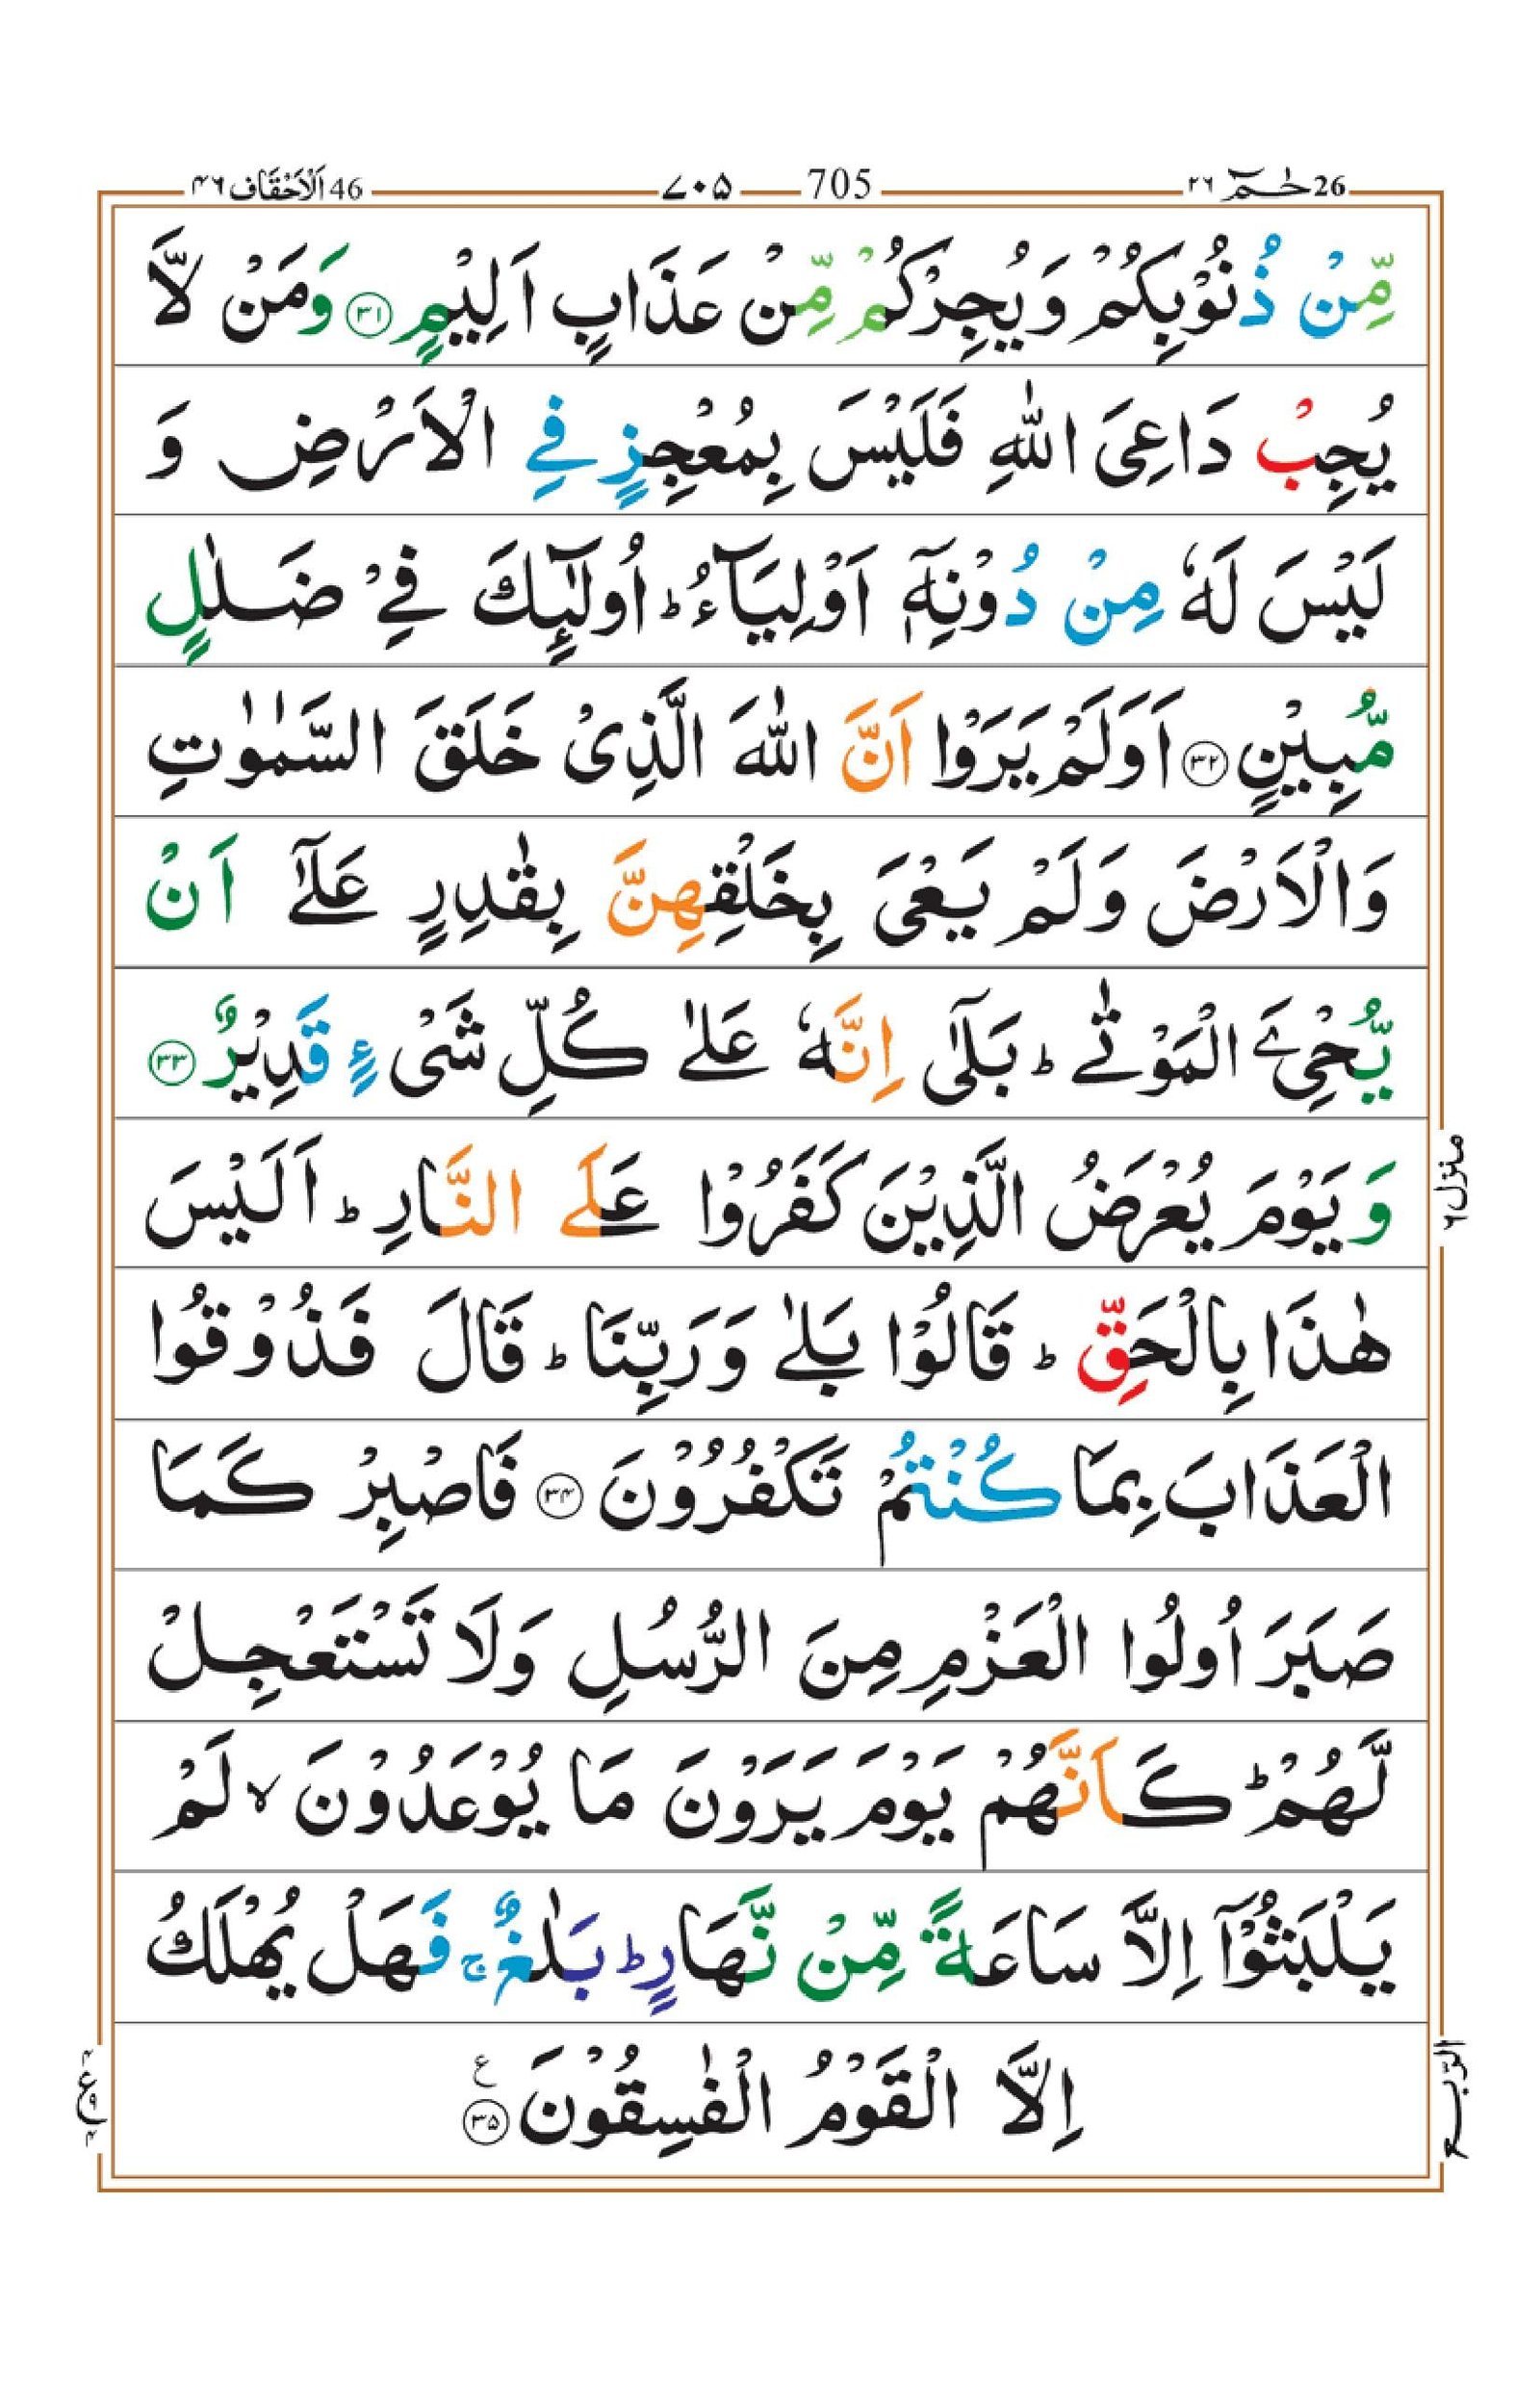 26 حٰمٓ ٢٦ 705 ۷۰۵ 46 اَلْاَحْقَاف ۴۶
مِّنْ ذُنُوْبِكُمْ وَيُجِرْكُمْ مِّنْ عَذَابٍ اَلِيْمٍ ﴿۳۱﴾ وَمَنْ لَّا
يُجِبْ دَاعِيَ اللّٰهِ فَلَيْسَ بِمُعْجِزٍ فِي الْاَرْضِ وَ
لَيْسَ لَهٗ مِنْ دُوْنِهٖٓ اَوْلِيَآءُ ؕ اُولٰٓئِكَ فِيْ ضَلٰلٍ
مُّبِيْنٍ ﴿۳۲﴾ اَوَلَمْ يَرَوْا اَنَّ اللّٰهَ الَّذِيْ خَلَقَ السَّمٰوٰتِ
وَالْاَرْضَ وَلَمْ يَعْيَ بِخَلْقِهِنَّ بِقٰدِرٍ عَلٰٓى اَنْ
يُّحْيِۦَ الْمَوْتٰى ؕ بَلٰٓى اِنَّهٗ عَلٰى كُلِّ شَيْءٍ قَدِيْرٌ ﴿۳۳﴾
وَيَوْمَ يُعْرَضُ الَّذِيْنَ كَفَرُوْا عَلَى النَّارِ ؕ اَلَيْسَ
هٰذَا بِالْحَقِّ ؕ قَالُوْا بَلٰى وَرَبِّنَا ؕ قَالَ فَذُوْقُوا
الْعَذَابَ بِمَا كُنْتُمْ تَكْفُرُوْنَ ﴿۳۴﴾ فَاصْبِرْ كَمَا
صَبَرَ اُولُوا الْعَزْمِ مِنَ الرُّسُلِ وَلَا تَسْتَعْجِلْ
لَّهُمْ ؕ كَاَنَّهُمْ يَوْمَ يَرَوْنَ مَا يُوْعَدُوْنَ ۙ لَمْ
يَلْبَثُوْٓا اِلَّا سَاعَةً مِّنْ نَّهَارٍ ؕ بَلٰغٌ ۚ فَهَلْ يُهْلَكُ
اِلَّا الْقَوْمُ الْفٰسِقُوْنَ ﴿۳۵﴾ ع
منزل ٦
الربع
ع ۴ ۹ ۴